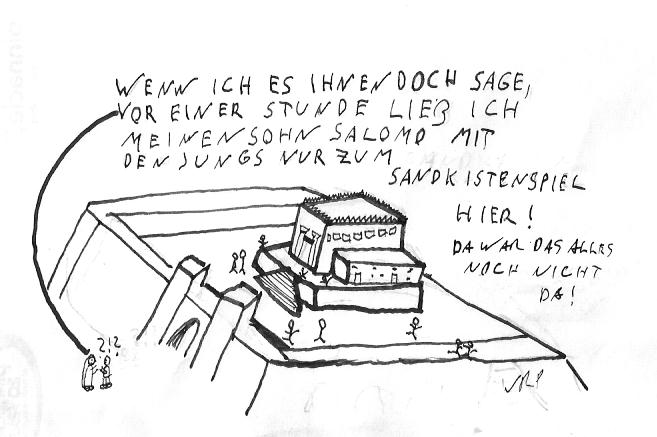 WENN ICH ES IHNEN DOCH SAGE,
VOR EINER STUNDE LIEß ICH
MEINEN SOHN SALOMO MIT
DEN JUNGS NUR ZUM
SANDKISTENSPIEL
HIER!
DA WAR DAS ALLES
NOCH NICHT
DA!
?!?